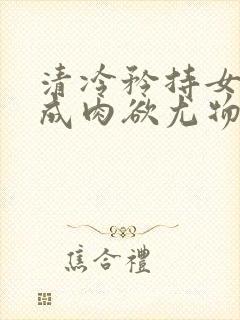 清冷矜持女
成肉欲尤物
焦合禮